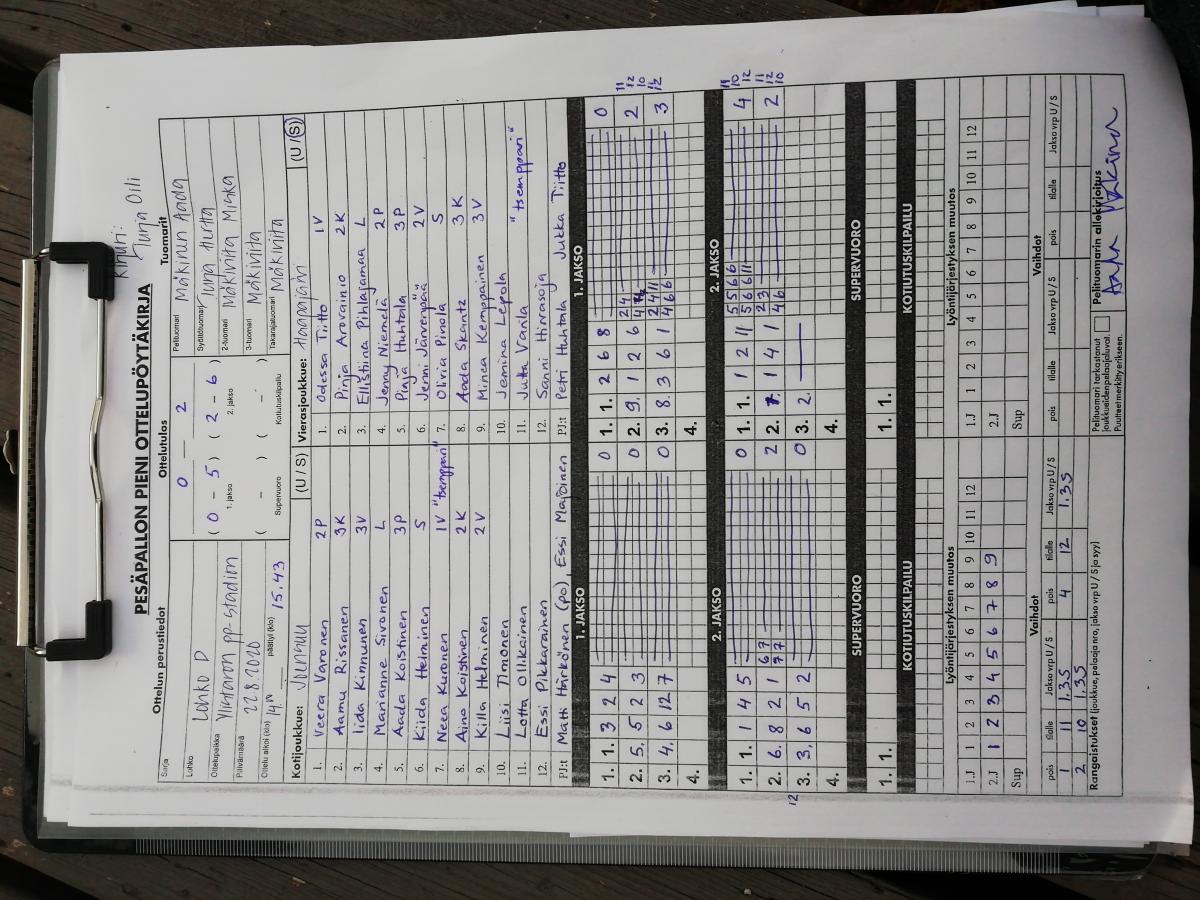 Kirjuri:
Flinja Oili
PESÄPALLON PIENI OTTELUPÖYTÄKIRJA
Ottelun perustiedot
Sarja
Lohko Lohko D
Ottelupaikka Ylistaron pp-stadion
Päivämäärä 22.8.2020
Ottelu alkoi (klo) päättyi (klo) 15.43
Ottelutulos
0 2
( 0 - 5 ) ( 2 - 6 )
1. jakso 2. jakso
( - ) ( - )
Supervuoro Kotiutuskilpailu
Tuomarit
Pelituomari Mäkinun Aada
Syöttötuomari
2-tuomari Mäkiviita Miska
3-tuomari Mäkiviita
Takarajatuomari Mäkiviita
Kotijoukkue: (U / S)
1. Veera Varonen 2P
2. Aamu Rissanen 3K
3. Iida Kinnunen 3V
4. Marianne Sivonen L
5. Aada Kaistinen 3P
6. Kiida Helminen S
7. Neea Kuonen 1V "tsemppari"
8. Aino Koistinen 2K
9. Killa Helminen 2V
10. Liisi Timonen
11. Lotta Ollikainen
12. Essi Pikkarainen
PJ:t Matti Härkönen (po), Essi Majoinen
Vierasjoukkue: Haapajärvi (U / S)
1. Odessa Tiitto 1V
2. Pinja Arovainio 2K
3. Eilistina Pihlajamaa L
4. Jenny Niemelä 2P
5. Pinja Huhtala 3P
6. Jenni Järvenpää 2V
7. Olivia Pinola S
8. Aada Skantz 3K
9. Minea Kemppainen 3V
10. Jemina Lepola
11. Juta Vanla "tsemppari"
12. Sanni Hirvasoja
PJ:t Petri Huhtala Jukka Tiitto
1. JAKSO
1. 1. 3 2 4 0
2. 5. 5 2 3 0
3. 4. 6 12 7 0
4.
1. JAKSO
1. 1. 2 6 8 0
2. 9. 1 2 6 2
3. 8. 3 6 1 3
4.
2. JAKSO
1. 1. 1 4 5 0
2. 6. 8 2 1 6 7 7 7 2
12 3. 3. 6 5 2 0
4.
2. JAKSO
1. 1. 1 2 11 5 5 6 6 5 6 6 11 4
2. 7. 1 4 1 2 3 4 6 2
3. 2.
4.
SUPERVUORO
1. 1.
SUPERVUORO
1. 1.
KOTIUTUSKILPAILU
KOTIUTUSKILPAILU
Lyöntijärjestyksen muutos
1.J 1 2 3 4 5 6 7 8 9 10 11 12
2.J 1 2 3 4 5 6 7 8 9
Sup
Lyöntijärjestyksen muutos
1.J 1 2 3 4 5 6 7 8 9 10 11 12
2.J
Sup
Vaihdot
pois tilalle Jakso vrp U / S pois tilalle Jakso vrp U / S
1 11 1.3S 4 12 1.3S
2 10 1.3S
Vaihdot
pois tilalle Jakso vrp U / S pois tilalle Jakso vrp U / S
Rangaistukset (joukkue, pelaajanro, jakso vrp U / S ja syy)
Pelituomari tarkastanut
joukkueiden pelaajaluvat
Puutteet merkitty erikseen.
Pelituomarin allekirjoitus